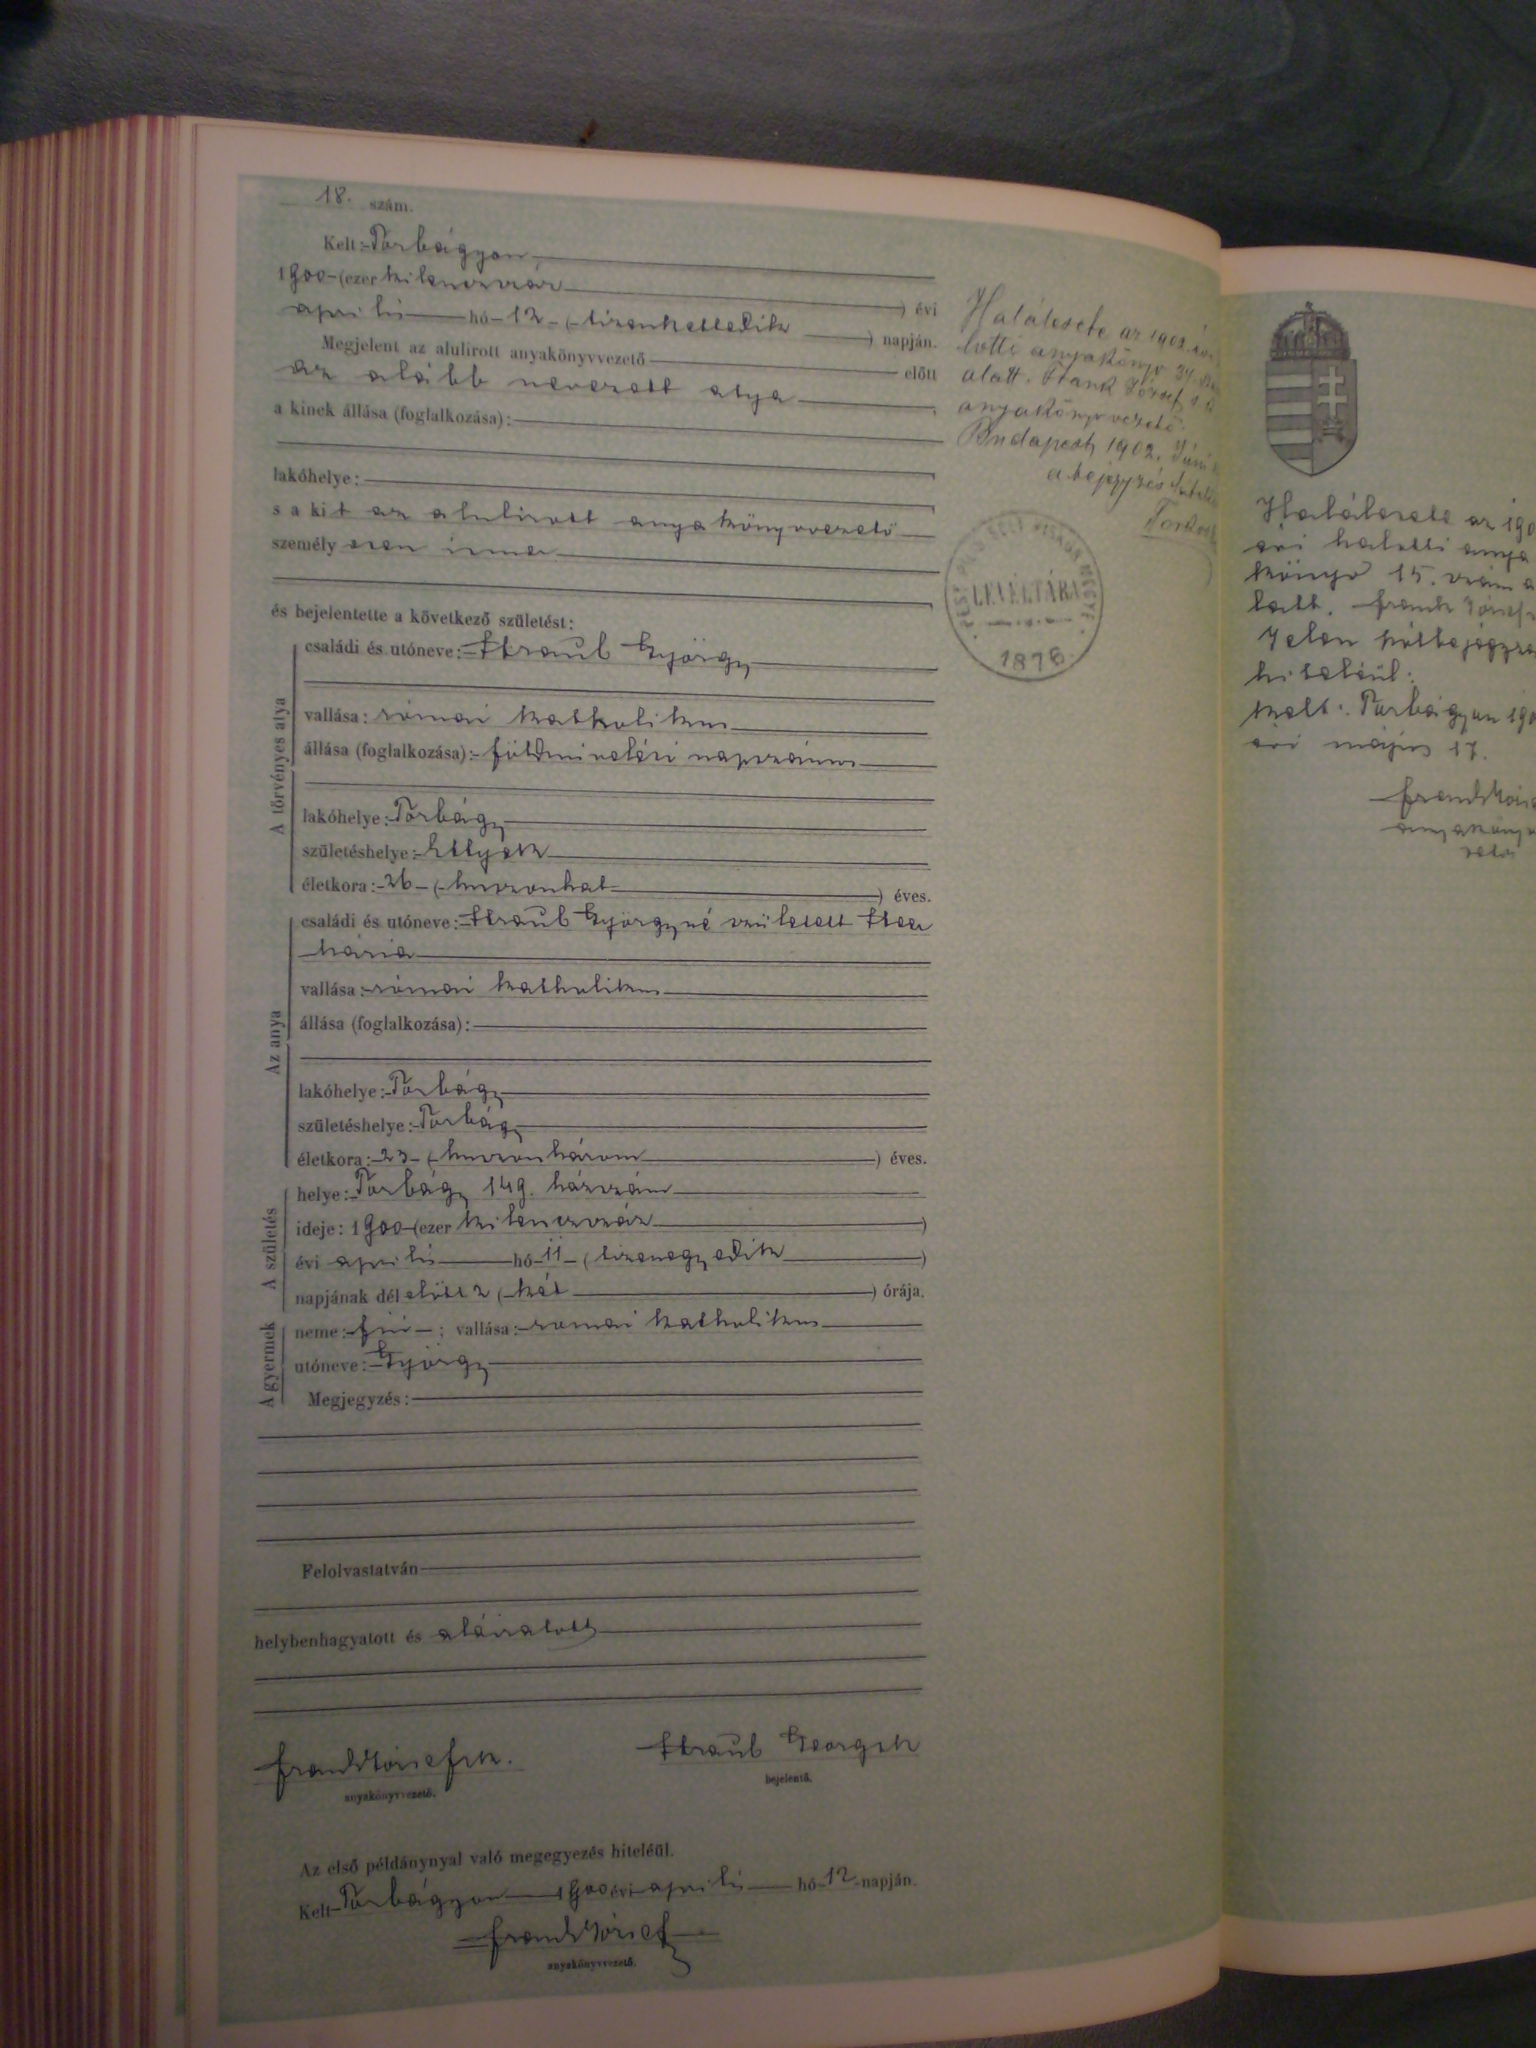 18. szám.
Kelt: Torbágyon
1900 (ezer kilenczszáz ) évi
április hó 12 (tizenkettedik ) napján.
Megjelent az alulirott anyakönyvvezető előtt
az alább nevezett atya ,
a kinek állása (foglalkozása):
lakóhelye:
s a kit az alulirott anyakönyvvezető
személyesen ismer
és bejelentette a következő születést:
A törvényes atya
családi és utóneve: Straub György
vallása: római katholikus
állása (foglalkozása): földmivelési napszámos
lakóhelye: Torbágy
születéshelye: Ettyek
életkora: 26 (huszonhat ) éves.
Az anya
családi és utóneve: Straub Györgyné született
Mária
vallása: római katholikus
állása (foglalkozása):
lakóhelye: Torbágy
születéshelye: Torbágy
életkora: 23 (huszonhárom ) éves.
A születés
helye: Torbágy 149. házszám
ideje: 1900 (ezer kilenczszáz )
évi április hó 11 (tizenegyedik )
napjának dél előtt 2 (két ) órája.
A gyermek
neme: fiú ; vallása: római katholikus
utóneve: György
Megjegyzés:
Felolvastatván
helybenhagyatott és aláíratott
Frank József sk.
anyakönyvvezető.
Straub Georg sk
bejelentő.
Az első példánynyal való megegyezés hiteléül.
Kelt Torbágyon 1900 évi április hó 12 napján.
Frank József
anyakönyvvezető.
Halálesete az 1902. évi
lotti anyakönyv 34.
alatt. Frank József s. k.
anyakönyvvezető.
Budapest, 1902. Júni
a bejegyzés hitele
LEVÉLTÁRA
1876.
Halálesete az 190
évi halotti anya
könyv 15. szám a
latt. Frank József
Jelen utóbejegyzés
hiteléül:
Kelt: Torbágyon 190
évi május 17.
Frank Józs
anyakönyv
vető